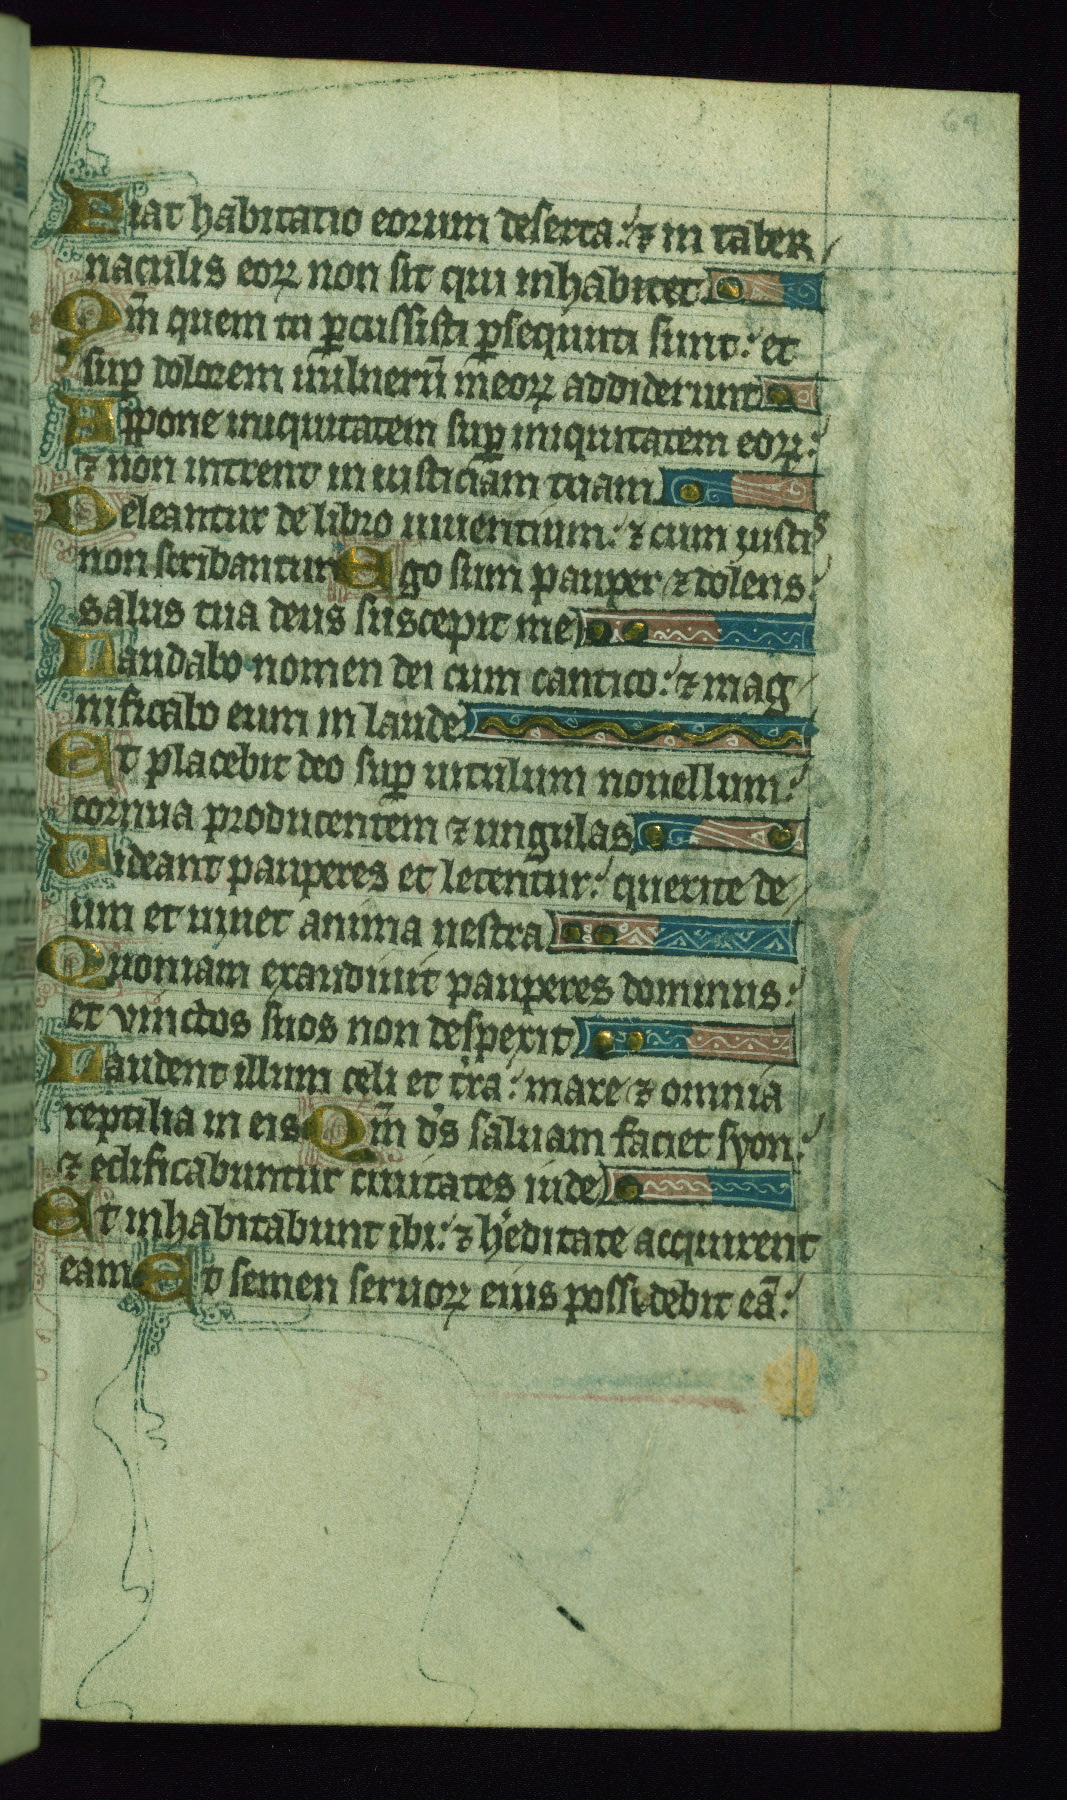 64
Fiat habitatio eorum deserta: ⁊ in taber
naculis eoꝝ non sit qui inhabitet
Qm̄ quem tu ꝑcussisti ꝑsequuti sunt: et
suꝑ dolorem uulnerū meoꝝ addiderunt
Appone iniquitatem suꝑ iniquitatem eoꝝ:
⁊ non intrent in iusticiam tuam
Deleantur de libro uiuentium: ⁊ cum iustis
non scribantur Ego sum pauper ⁊ dolens:
salus tua deus suscepit me
Laudabo nomen dei cum cantico: ⁊ mag
nificabo eum in laude
Et placebit deo suꝑ uitulum nouellum:
cornua producentem ⁊ ungulas
Uideant pauperes et letentur: querite de
um et uiuet anima uestra
Quoniam exaudiuit pauperes dominus:
et vinctos suos non despexit
Laudent illum celi et tr̄a: mare ⁊ omnia
reptilia in eis Qm̄ d̄s saluam faciet syon:
⁊ edificabuntur ciuitates iude
Et inhabitabunt ibi: ⁊ h̄editate acquirent
eam Et semen seruoꝝ eius possidebit eā: